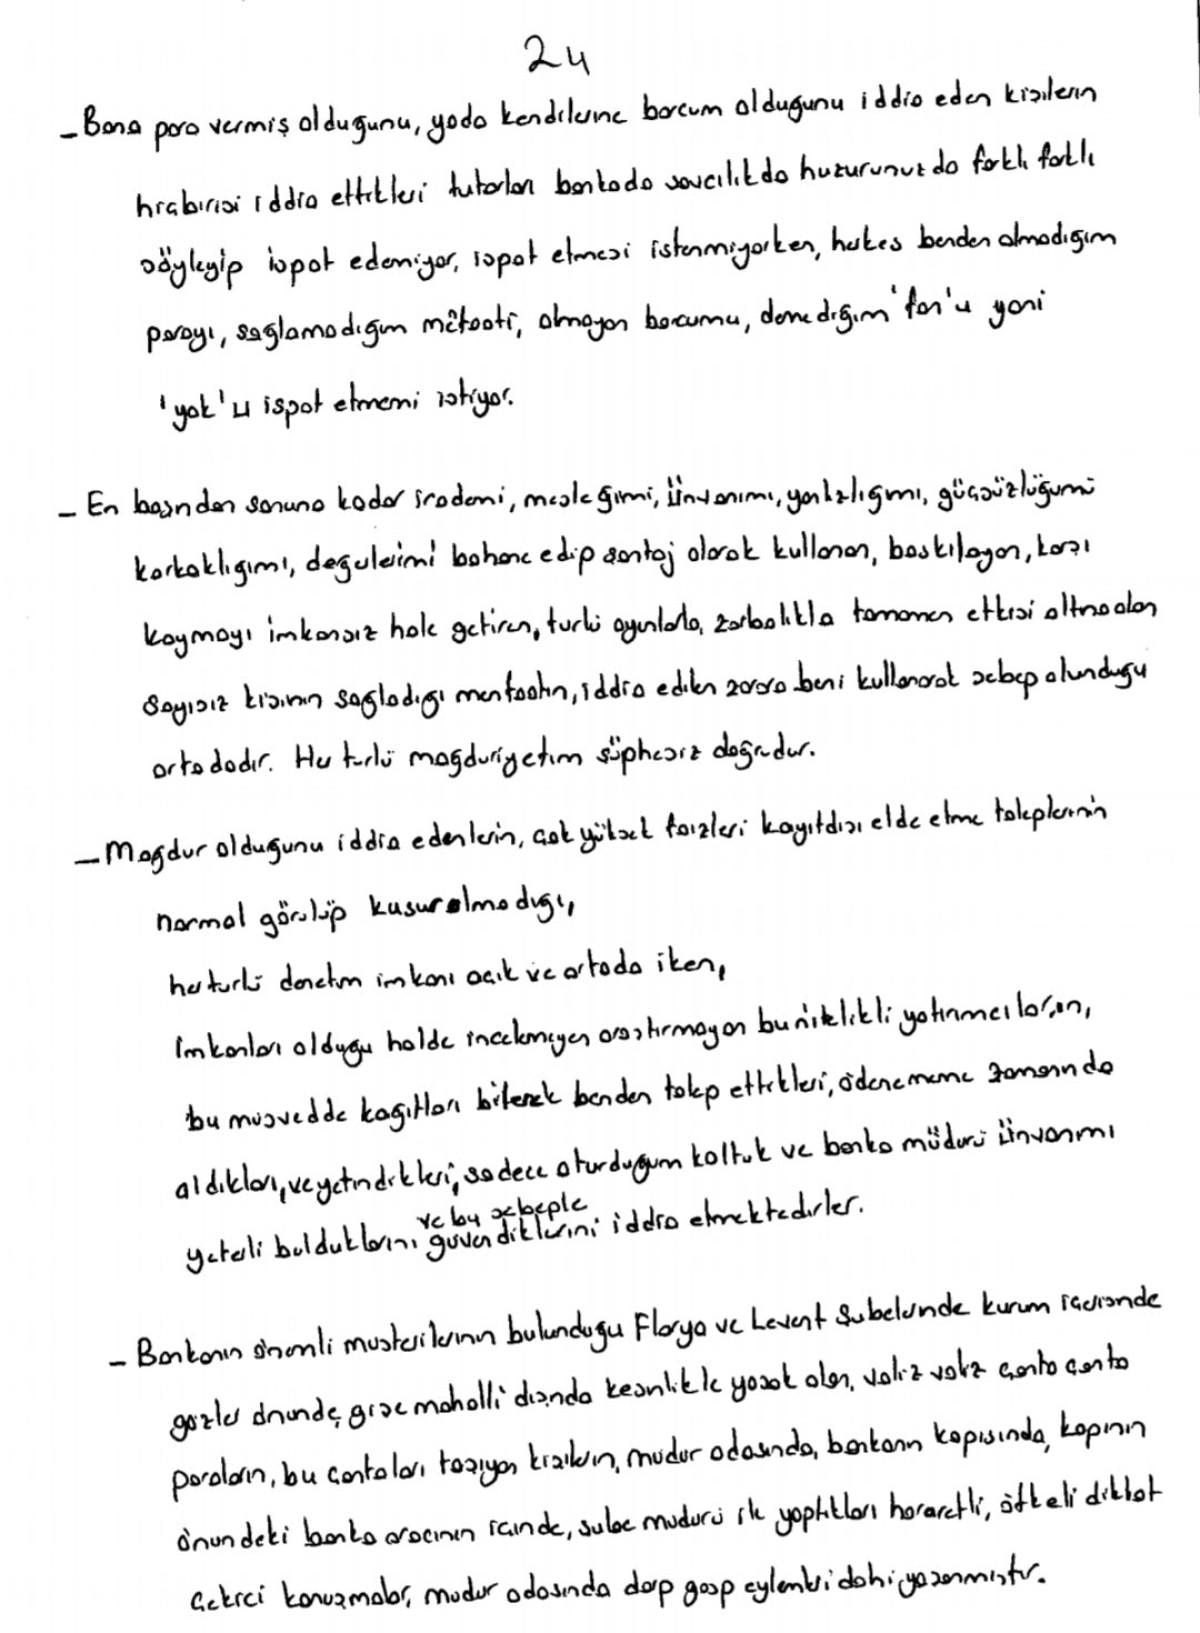 24
- Bana para vermiş olduğunu, yada kendilerine borcum olduğunu iddia eden kişilerin
hiçbirisi iddia ettikleri tutarları bankada savcılıkda huzurunuzda farklı farklı
söyleyip ispat edemiyor, ispat etmesi istenmiyorken, herkes benden almadığım
parayı, sağlamadığım menfaati, olmayan borcumu, denediğim 'fon'u yani
'yok'u ispat etmemi istiyor.
- En başından sonuna kadar irademi, mesleğimi, ünvanımı, yanlızlığımı, güçsüzlüğümü
korkaklığımı, değerlerimi bahane edip şantaj olarak kullanan, baskılayan, karşı
koymayı imkansız hale getiren, türlü oyunlarla, zorbalıkla tamamen etkisi altına alan
sayısız kişinin sağladığı menfaatin, iddia edilen zarara beni kullanarak sebep olunduğu
ortadadır. Her türlü mağduriyetim şüphesiz doğrudur.
- Mağdur olduğunu iddia edenlerin, çok yüksek faizleri kayıtdışı elde etme taleplerinin
normal görülüp kusur olmadığı,
her türlü denetim imkanı açık ve ortada iken,
imkanları olduğu halde incelemeyen araştırmayan bu nitelikli yatırımcıların,
bu müsvedde kağıtları bilerek benden talep ettikleri, ödenememe zamanında
aldıkları, ve yetindikleri, sadece oturduğum koltuk ve banka müdürü ünvanımı
ve bu sebeple
yeterli bulduklarını güvendiklerini iddia etmektedirler.
- Bankanın önemli müşterilerinin bulunduğu Florya ve Levent Şubelerinde kurum içerisinde
gözler önünde, gişe mahalli dışında kesinlikle yasak olan, valiz valiz çanta çanta
paraların, bu çantaları taşıyan kişilerin, müdür odasında, bankanın kapısında, kapının
önündeki banka aracının içinde, şube müdürü ile yaptıkları hararetli, öfkeli dikkat
çekici konuşmalar, müdür odasında darp gasp eylemleri dahi yaşanmıştır.